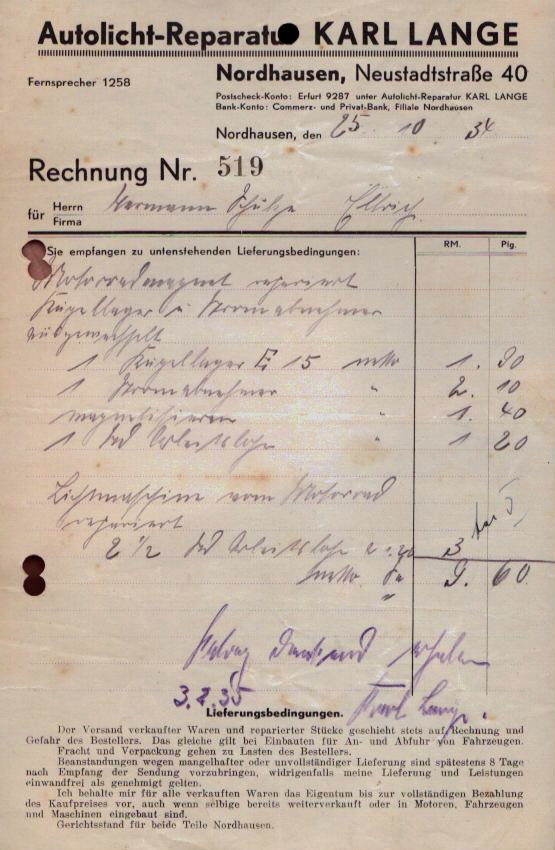 Autolicht-Reparatur KARL LANGE
Fernsprecher 1258
Nordhausen, Neustadtstraße 40
Postscheck-Konto: Erfurt 9287 unter Autolicht-Reparatur KARL LANGE
Bank-Konto: Commerz- und Privat-Bank, Filiale Nordhausen
Nordhausen, den 25. 10 34
Rechnung Nr. 519
für Herrn Firma Hermann Schulze Ellrich.
Sie empfangen zu untenstehenden Lieferungsbedingungen: RM. Pfg.
Motorradmagnet repariert
Kugellager u Stromabnehmer
ausgewechselt
1 Kugellager E 15 netto 1. 90
1 Stromabnehmer " 2. 10
magnetisieren " 1. 40
1 Std Arbeitslohn " 1 20
Lichtmaschine vom Motorrad
repariert
2 1/2 Std Arbeitslohn a 1.20 3
netto 9. 60
Betrag dankend erhalten
3.2.35 Karl Lange.
Lieferungsbedingungen.
Der Versand verkaufter Waren und reparierter Stücke geschieht stets auf Rechnung und
Gefahr des Bestellers. Das gleiche gilt bei Einbauten für An- und Abfuhr von Fahrzeugen.
Fracht und Verpackung gehen zu Lasten des Bestellers.
Beanstandungen wegen mangelhafter oder unvollständiger Lieferung sind spätestens 8 Tage
nach Empfang der Sendung vorzubringen, widrigenfalls meine Lieferung und Leistungen
einwandfrei als genehmigt gelten.
Ich behalte mir für alle verkauften Waren das Eigentum bis zur vollständigen Bezahlung
des Kaufpreises vor, auch wenn selbige bereits weiterverkauft oder in Motoren, Fahrzeugen
und Maschinen eingebaut sind.
Gerichtsstand für beide Teile Nordhausen.